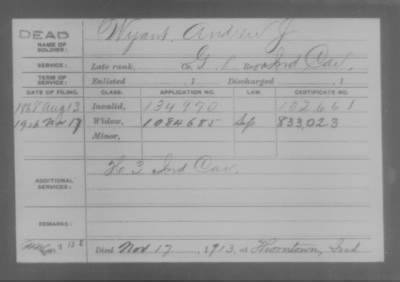 DEAD
NAME OF SOLDIER: Wyant, Andrew J
SERVICE: Late rank, Co. G, Reg't Ind Cav.
TERM OF SERVICE: Enlisted , 1 Discharged , 1
DATE OF FILING. CLASS. APPLICATION NO. LAW. CERTIFICATE NO.
1868 Aug 13 Invalid, 134990 102661
Nov 17 Widow, 1084685 833,023
Minor,
ADDITIONAL SERVICES: 3 Ind Cav.
REMARKS:
Died Nov 17, 1913, at Thorntown, Ind